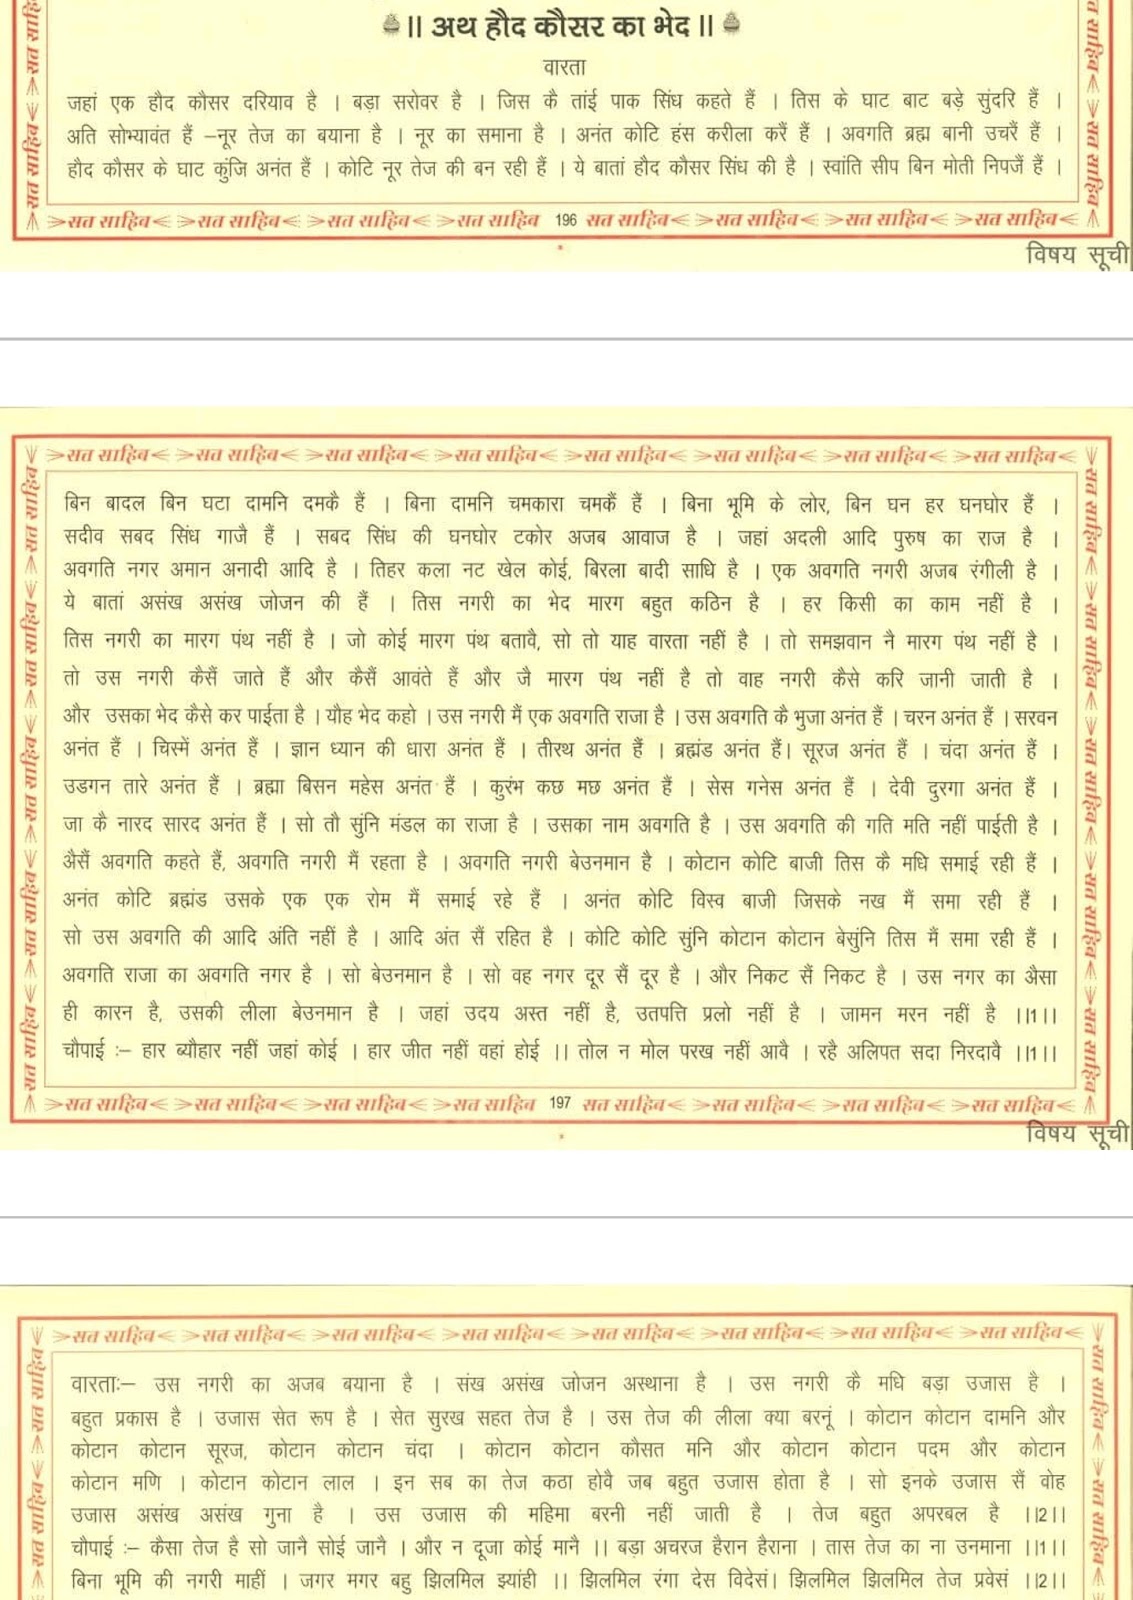 ।। अथ हौद कौसर का भेद ।।
वारता
जहां एक हौद कौसर दरियाव है । बड़ा सरोवर है । जिस कै तांई पाक सिंघ कहते हैं । तिस के घाट बाट बड़े सुंदरि हैं ।
अति सोभ्यावंत हैं –नूर तेज का बयाना है । नूर का समाना है । अनंत कोटि हंस करीला करैं हैं । अवगति ब्रह्म बानी उचरैं हैं ।
हौद कौसर के घाट कुंजि अनंत हैं । कोटि नूर तेज की बन रही हैं । ये बातां हौद कौसर सिंघ की है । स्वांति सीप बिन मोती निपजैं हैं ।
सत साहिब सत साहिब सत साहिब सत साहिब 196 सत साहिब सत साहिब सत साहिब सत साहिब
विषय सूची
सत साहिब सत साहिब सत साहिब सत साहिब सत साहिब सत साहिब सत साहिब सत साहिब
बिन बादल बिन घटा दामनि दमकै हैं । बिना दामनि चमकारा चमकैं हैं । बिना भूमि के लोर, बिन घन हर घनघोर हैं ।
सदीव सबद सिंध गाजै हैं । सबद सिंध की घनघोर टकोर अजब आवाज है । जहां अदली आदि पुरुष का राज है ।
अवगति नगर अमान अनादी आदि है । तिहर कला नट खेल कोई, बिरला बादी साधि है । एक अवगति नगरी अजब रंगीली है ।
ये बातां असंख असंख जोजन की हैं । तिस नगरी का भेद मारग बहुत कठिन है । हर किसी का काम नहीं है ।
तिस नगरी का मारग पंथ नहीं है । जो कोई मारग पंथ बतावै, सो तो याह वारता नहीं है । तो समझवान नै मारग पंथ नहीं है ।
तो उस नगरी कैसैं जाते हैं और कैसैं आवंते हैं और जै मारग पंथ नहीं है तो वाह नगरी कैसे करि जानी जाती है ।
और उसका भेद कैसे कर पाईता है । यौह भेद कहो । उस नगरी मैं एक अवगति राजा है । उस अवगति कै भुजा अनंत हैं । चरन अनंत हैं । सरवन
अनंत हैं । चिस्में अनंत हैं । ज्ञान ध्यान की धारा अनंत हैं । तीरथ अनंत हैं । ब्रह्मंड अनंत हैं। सूरज अनंत हैं । चंदा अनंत हैं ।
उडगन तारे अनंत हैं । ब्रह्मा बिसन महेस अनंत हैं । कुरंभ कछ मछ अनंत हैं । सेस गनेस अनंत हैं । देवी दुरगा अनंत हैं ।
जा कै नारद सारद अनंत हैं । सो तौ सुंनि मंडल का राजा है । उसका नाम अवगति है । उस अवगति की गति मति नहीं पाईती है ।
अैसैं अवगति कहते हैं, अवगति नगरी मैं रहता है । अवगति नगरी बेउनमान है । कोटान कोटि बाजी तिस कै मधि समाई रही हैं ।
अनंत कोटि ब्रह्मंड उसके एक एक रोम मैं समाई रहे हैं । अनंत कोटि विस्व बाजी जिसके नख मैं समा रही हैं ।
सो उस अवगति की आदि अंति नहीं है । आदि अंत सैं रहित है । कोटि कोटि सुंनि कोटान कोटान बेसुंनि तिस मैं समा रही हैं ।
अवगति राजा का अवगति नगर है । सो बेउनमान है । सो वह नगर दूर सैं दूर है । और निकट सैं निकट है । उस नगर का अैसा
ही कारन है, उसकी लीला बेउनमान है । जहां उदय अस्त नहीं है, उतपत्ति प्रलो नहीं है । जामन मरन नहीं है ।।1।।
चौपाई :– हार ब्यौहार नहीं जहां कोई । हार जीत नहीं वहां होई ।। तोल न मोल परख नहीं आवै । रहै अलिपत सदा निरदावै ।।1।।
सत साहिब सत साहिब सत साहिब सत साहिब 197 सत साहिब सत साहिब सत साहिब सत साहिब
विषय सूची
सत साहिब सत साहिब सत साहिब सत साहिब सत साहिब सत साहिब सत साहिब सत साहिब
वारताः– उस नगरी का अजब बयाना है । संख असंख जोजन अस्थाना है । उस नगरी कै मधि बड़ा उजास है ।
बहुत प्रकास है । उजास सेत रूप है । सेत सुरख सहत तेज है । उस तेज की लीला क्या बरनूं । कोटान कोटान दामनि और
कोटान कोटान सूरज, कोटान कोटान चंदा । कोटान कोटान कौसत मनि और कोटान कोटान पदम और कोटान
कोटान मणि । कोटान कोटान लाल । इन सब का तेज कठा होवै जब बहुत उजास होता है । सो इनके उजास सैं वोह
उजास असंख असंख गुना है । उस उजास की महिमा बरनी नहीं जाती है । तेज बहुत अपरबल है ।।2।।
चौपाई :– कैसा तेज है सो जानै सोई जानै । और न दूजा कोई मानै ।। बड़ा अचरज हैरान हैराना । तास तेज का ना उनमाना ।।1।।
बिना भूमि की नगरी माहीं । जगर मगर बहु झिलमिल झ्यांही ।। झिलमिल रंगा देस विदेसं। झिलमिल झिलमिल तेज प्रवेसं ।।2।।